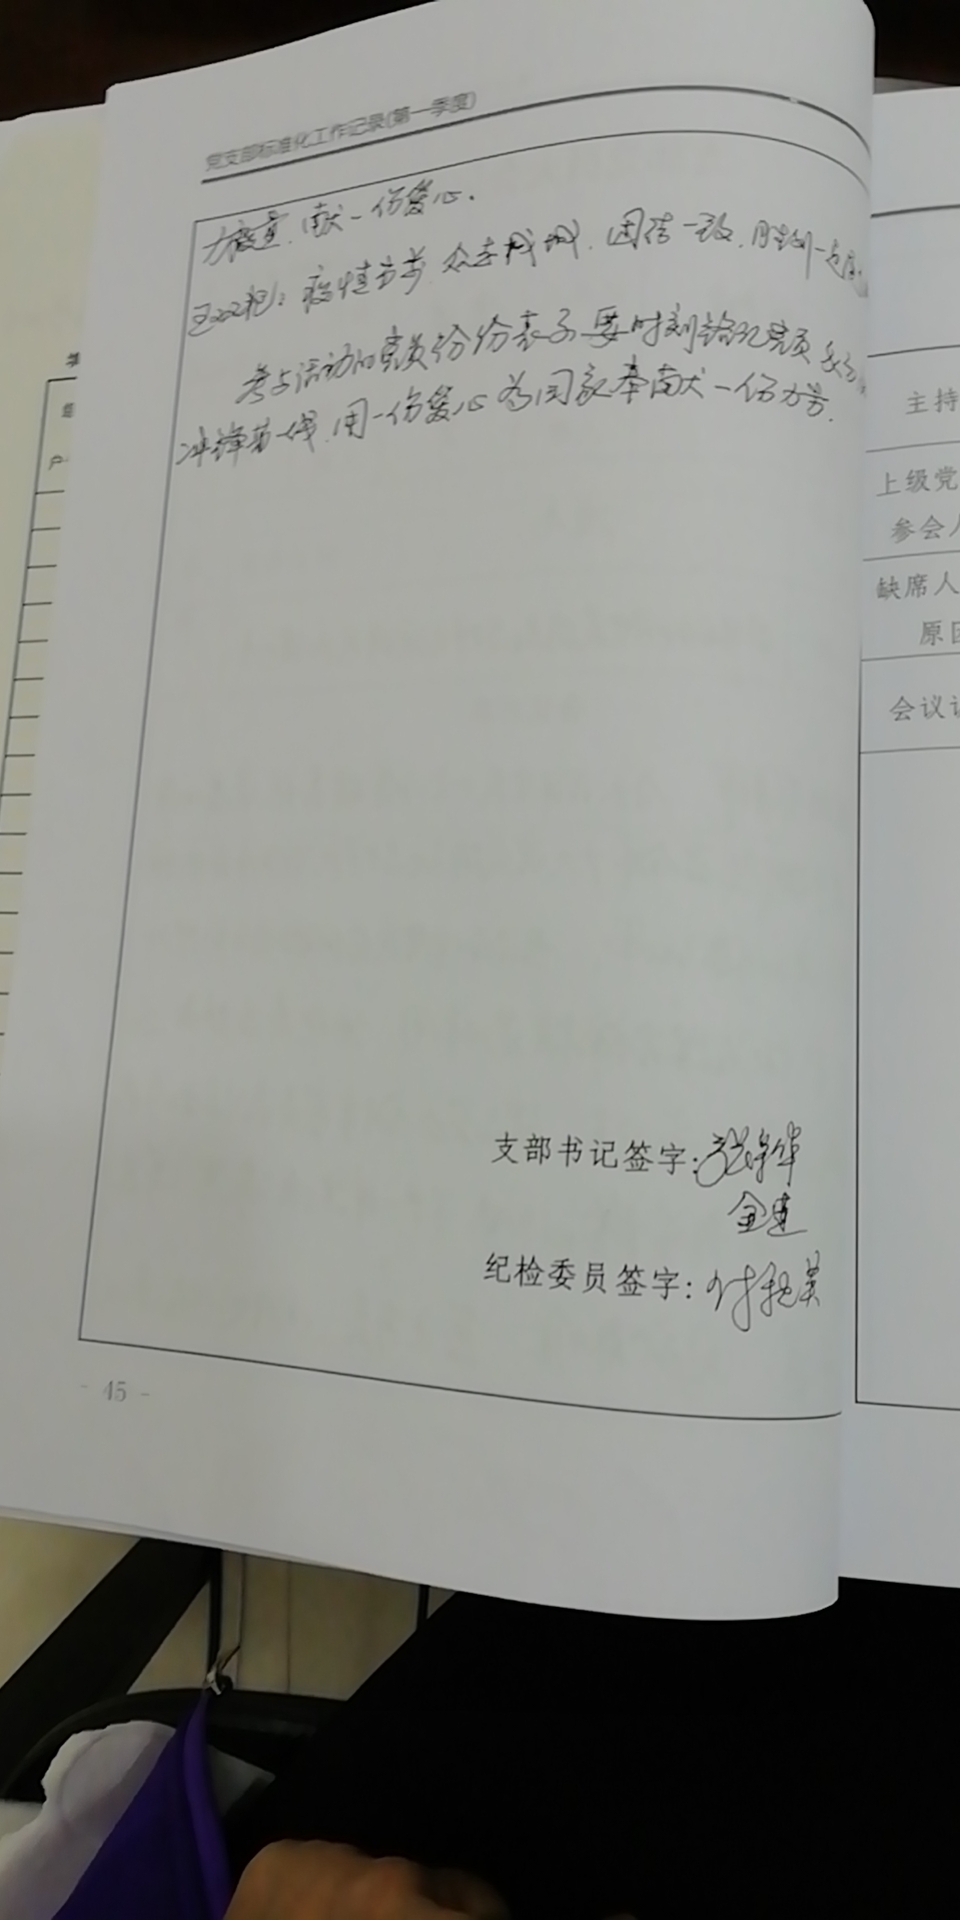 党支部标准化工作记录(第一季度)
献一份爱心.
疫情当前 众志成城. 团结一致.
参与活动的党员纷纷表示要时刻铭记党员
冲锋第一线 用一份爱心为国家奉献一份力量.
支部书记签字:
金莲
纪检委员签字: 付艳英
- 45 -
主持
上级党
参会人
缺席人
原因
会议议